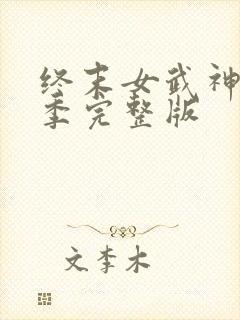 终末女武神
季完整版
文李木